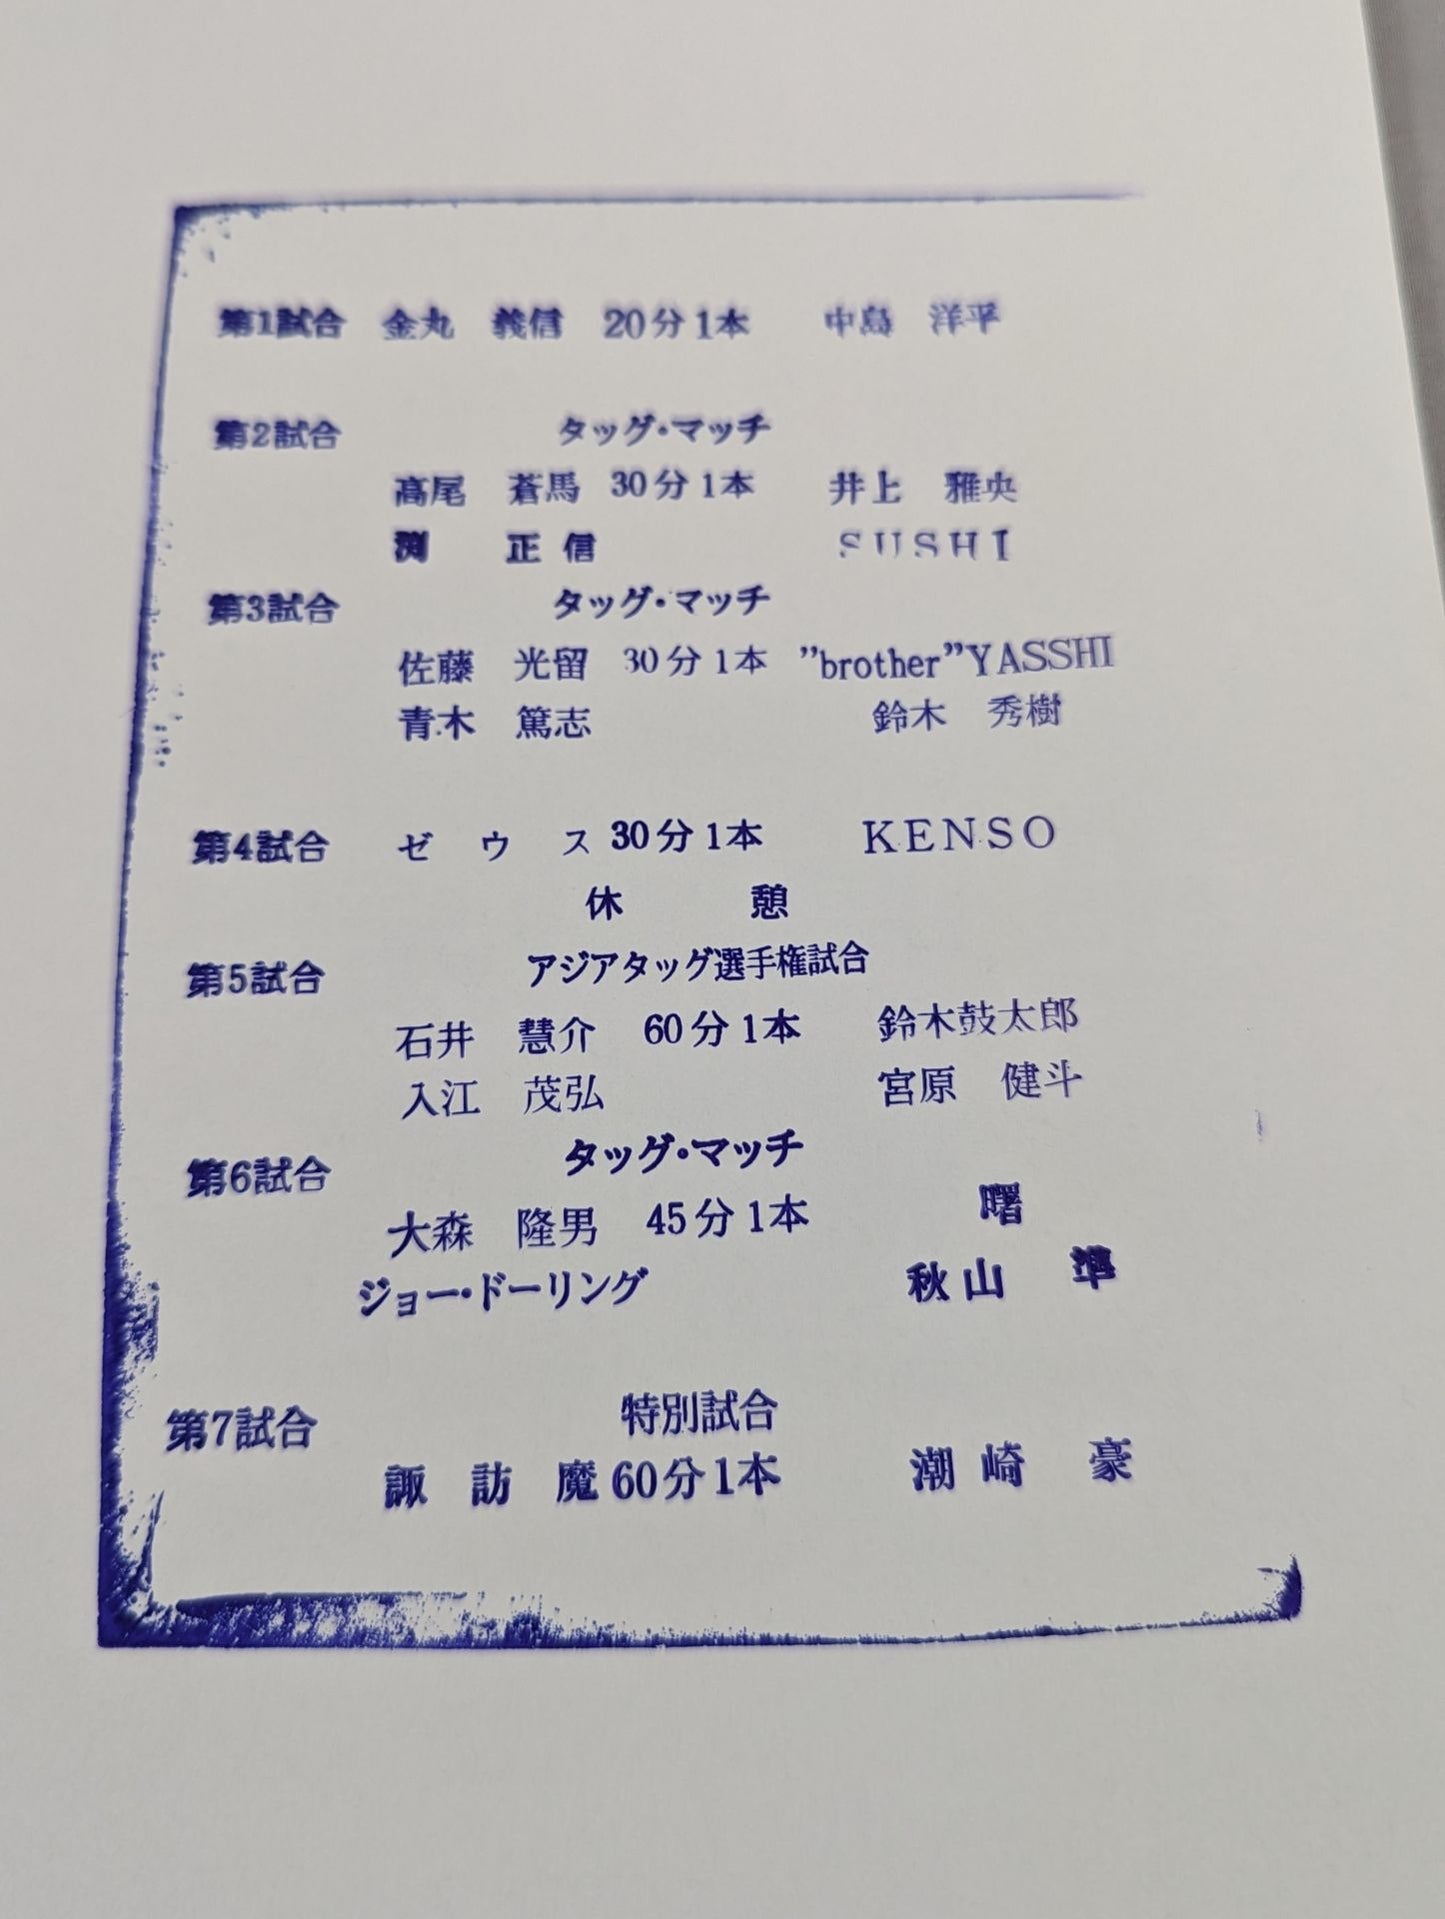 第1試合 金丸 義信 20分1本 中島 洋平
第2試合 タッグ・マッチ
髙尾 蒼馬 30分1本 井上 雅央
渕 正信 SUSHI
第3試合 タッグ・マッチ
佐藤 光留 30分1本 ”brother”YASSHI
青木 篤志 鈴木 秀樹
第4試合 ゼウス 30分1本 KENSO
休憩
第5試合 アジアタッグ選手権試合
石井 慧介 60分1本 鈴木鼓太郎
入江 茂弘 宮原 健斗
第6試合 タッグ・マッチ
大森 隆男 45分1本 曙
ジョー・ドーリング 秋山 準
第7試合 特別試合
諏訪魔 60分1本 潮崎 豪